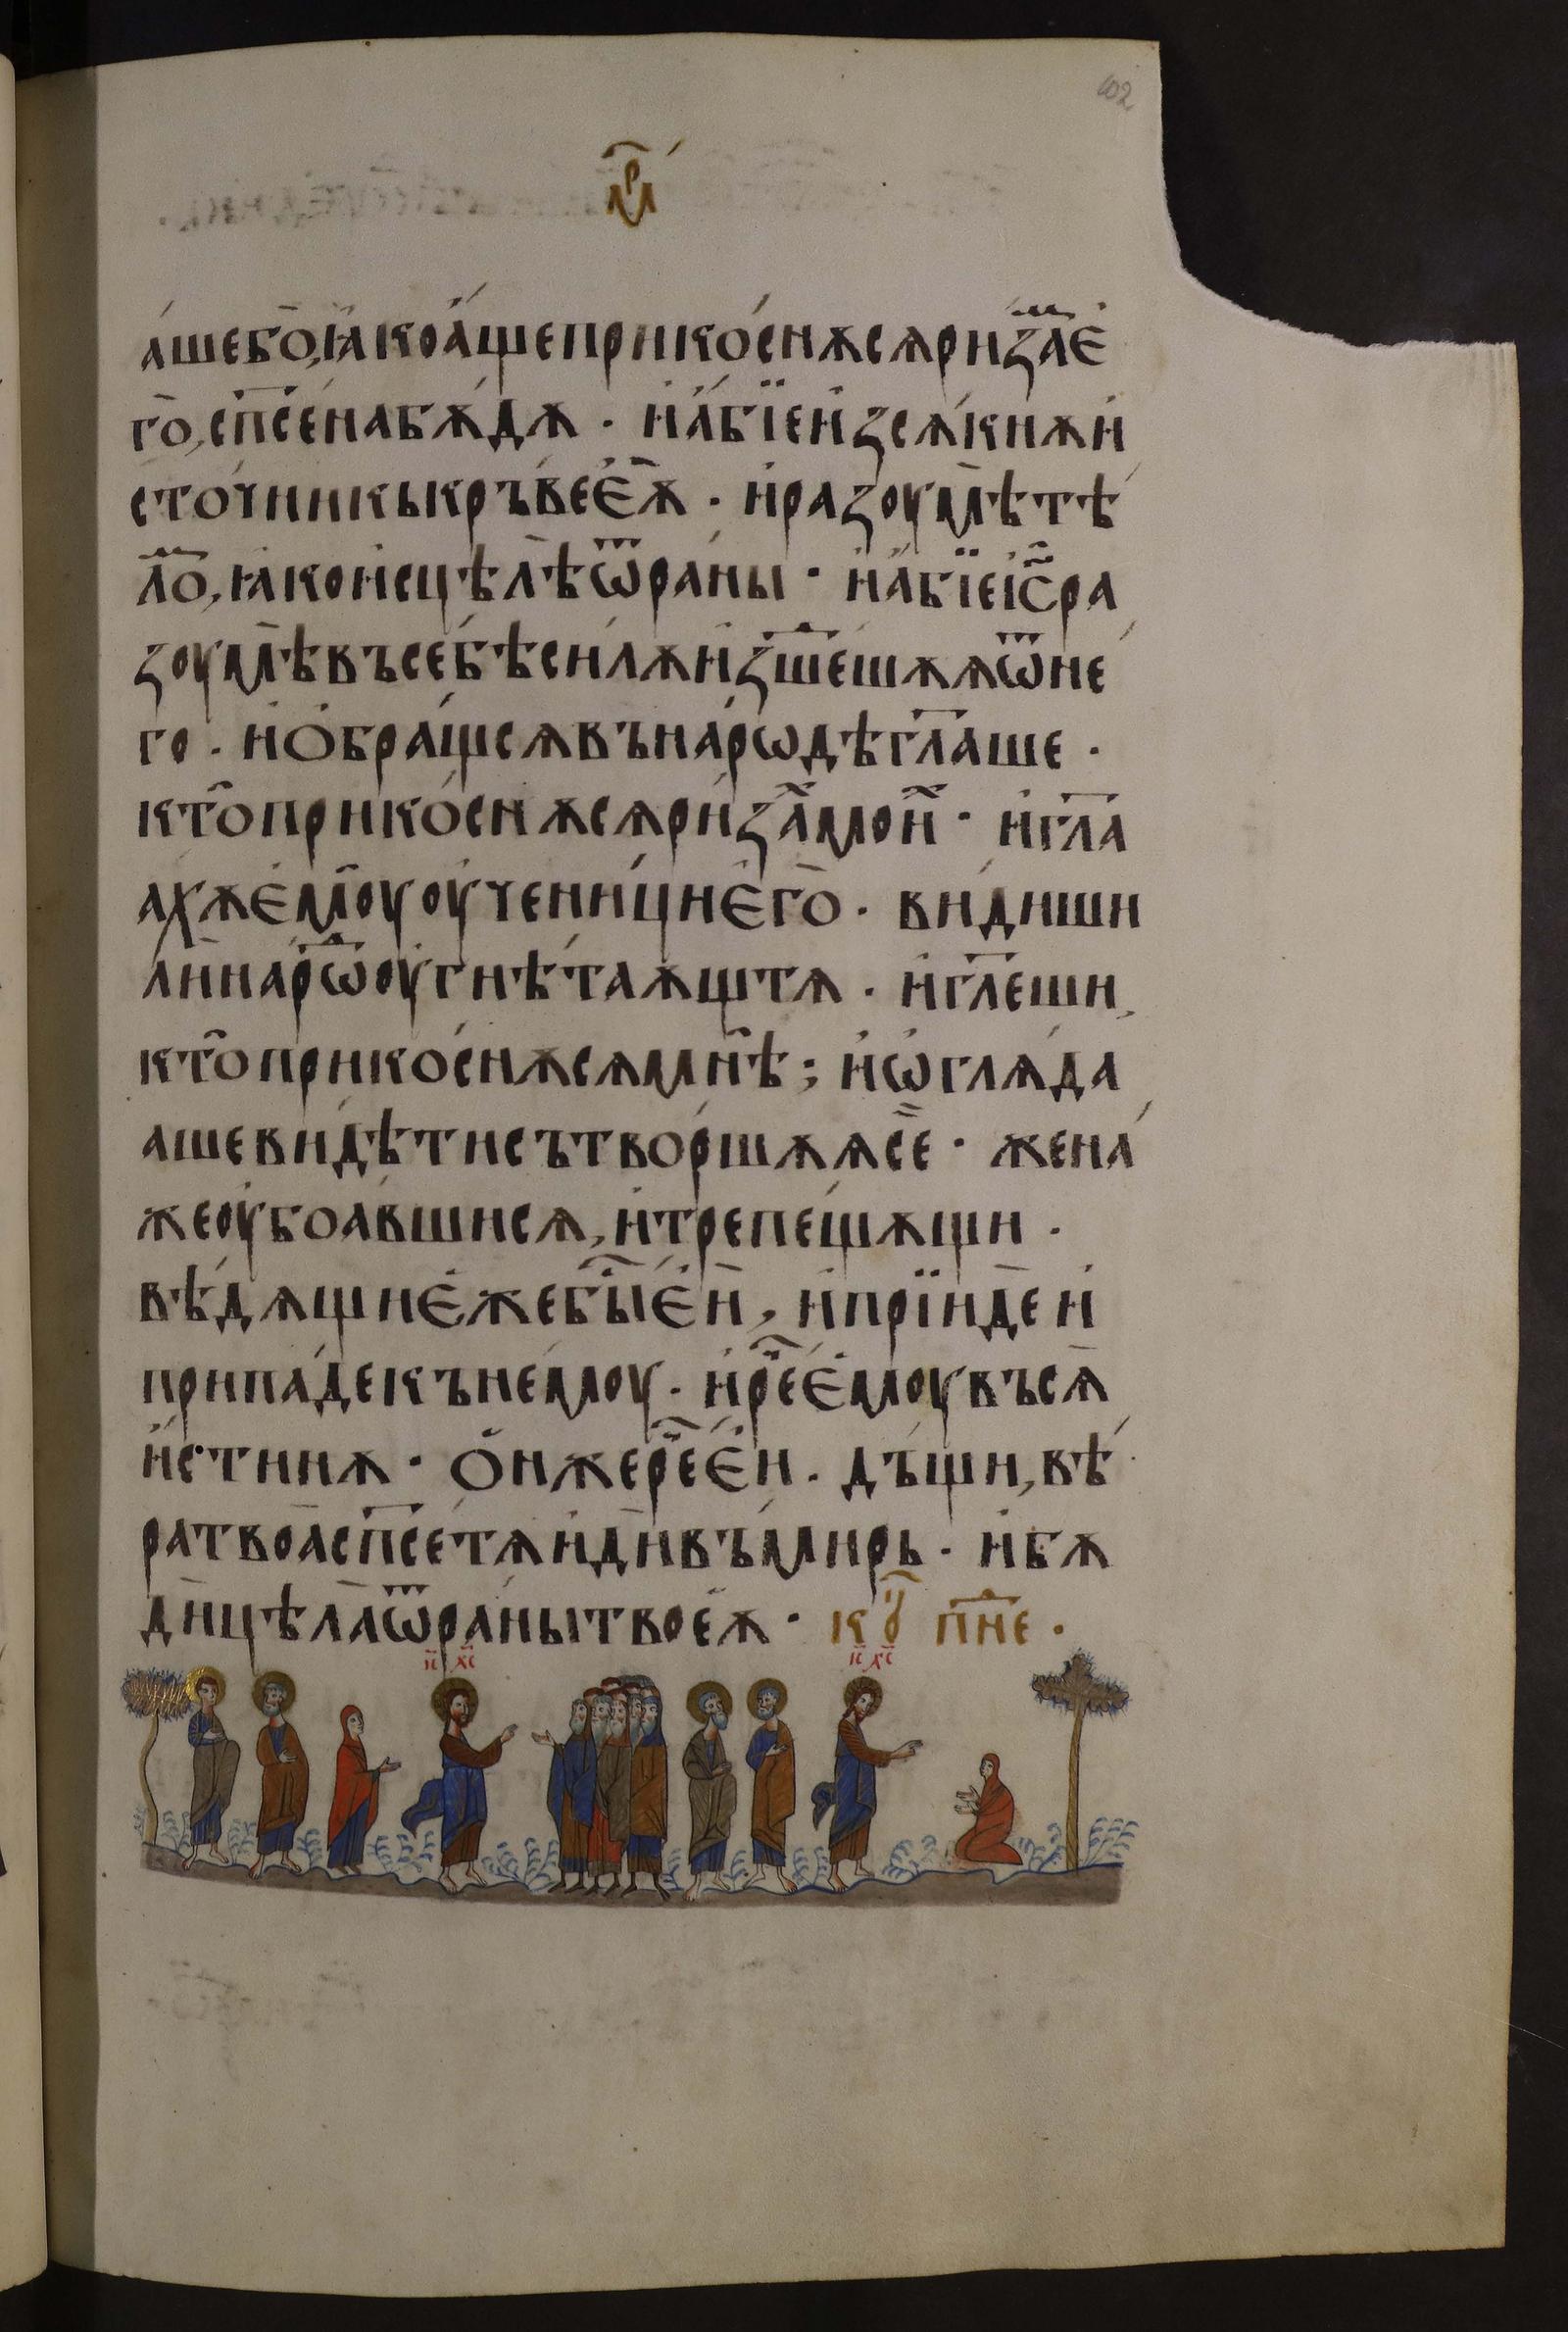 102
мр҃
а́шебо̀, ꙗ҆коа́щеприко́снѫсѧри́за̏ е҆
го̀, сп҃се́набѫ́дѫ · и҆а́бїеи҆зсѧ́кнѫи҆
сто́чникькръ́веѐѫ · и҆разоумѣ̀тѣ́
ло̏, ꙗ҆кои҆сцѣлѣ̀ѿра́ны · и҆а́бїеі҆с҃ра
зоумѣ̀въсе́бѣси́лѫи҆зше́шѫѧѿне
го · и҆ѻ҆бра́щсѧвънарѡ́дѣгл҃аше ·
кто̀прико́снѫсѧри́за̏мои̏ · и҆гл҃а
ахѫе҆моу̀оу҆чени́цие҆го̀ · ви́диши
лѝнарѡ̑оу҆гнѣта́ѫщтѧ · и҆гл҃еши,
кто̀прико́снѫсѧмнѣ̀ ; и҆ѡ҆глѧ́да
ашеви́дѣтисътво́ршѫѧсѐ · жена́
жеоу҆боа́вшисѧ, и҆трепе́щѫщи ·
вѣ́дѧщие҆́жебы̑е҆́ѝ, и҆прїи́дѐи҆
припа́декъне́моу · и҆ре̑е҆́моувъсѧ̀
и҆́стинѫ · ѻ҆́нжере̑е҆́и · дъ́щи, вѣ́
ратвоа̀сп҃се́тѧи҆дѝвъ́мирь · и҆бѫ
дѝцѣла̀ѿра́нытвоеѫ̀ · коⷰ҇ пн҃е ·
і҃с х҃с
і҃с х҃с